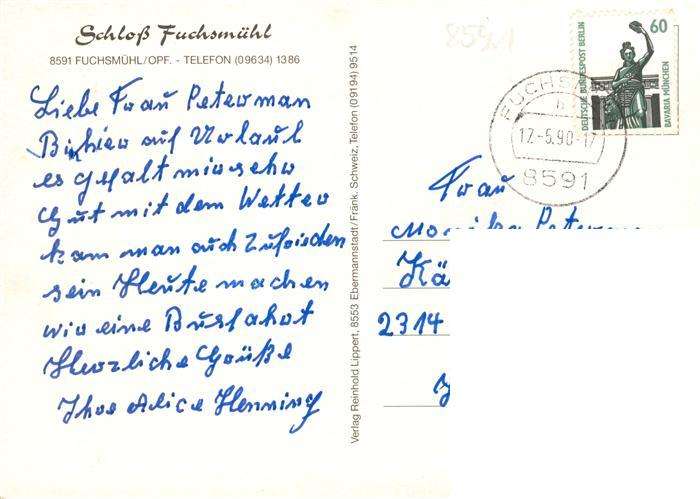 Schloß Fuchsmühl
8591 FUCHSMÜHL/OPF. - TELEFON (09634) 1386
Liebe Frau Peterman
Bin hier auf Urlaub
es gefält mir sehr
Gut mit dem Wetter
kan man auch Zufrieden
sein Heute machen
wir eine Busfahrt
Herzliche Grüße
Ihre Alice Henning
Verlag Reinhold Lippert, 8553 Ebermannstadt/Fränk. Schweiz, Telefon (09194) 9514
DEUTSCHE BUNDESPOST BERLIN
60
BAVARIA MÜNCHEN
FUCHS
h
17.-5.90-17
8591
Frau
Peterm
Kä
2314